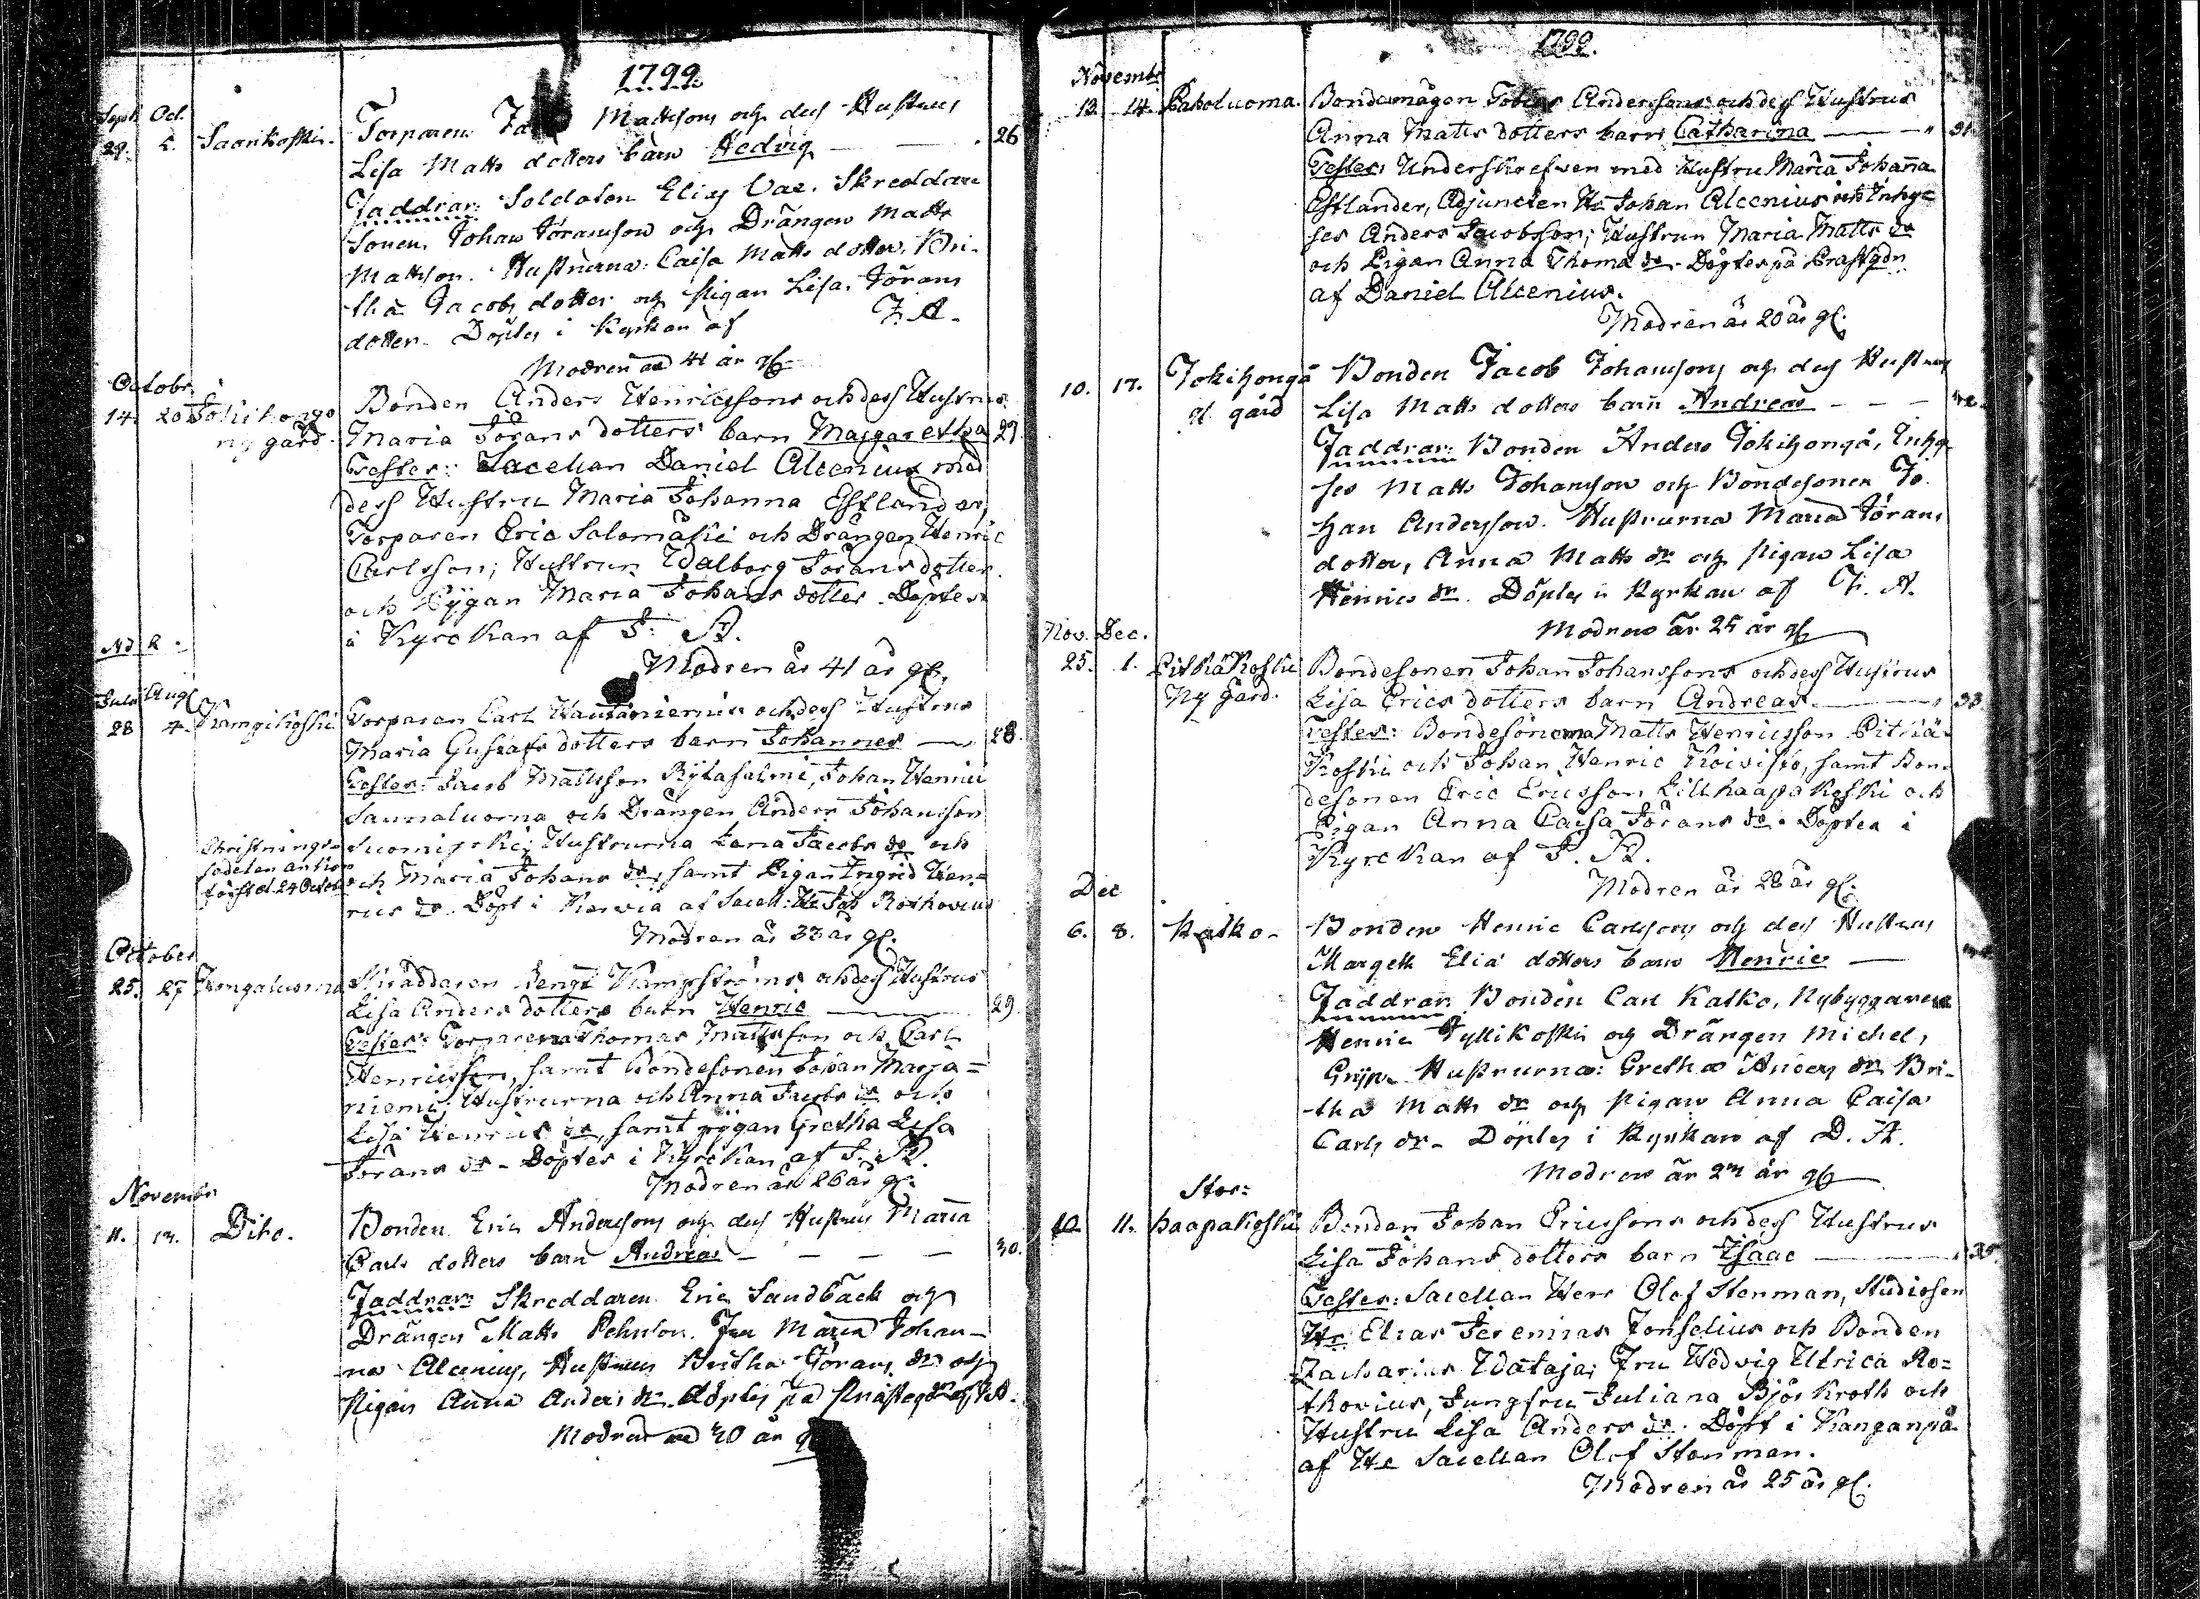 1799.
Sept. Oct.
29. 5. Saarikoski. Torparen Mattssons och dess Hustrus
Lisa Matts dotters barn Hedvig — 26
Faddrar: Soldaten Elias Skreddare
Sonen Johan Göransson och Drängen Matts
Mattson. Hustrurna: Caisa Matts dotter, Bri-
tha Jacobs dotter och Pigan Lisa Görans
dotter. Döptes i Kyrkan af J. A.
Modren är 41 år gl.
Octobr.
14. 20 Jokihonga Bonden Anders Henricssons och dess Hustrus
ny gård. Maria Görans dotters barn Margaretha 27
Testes: Sacellan Daniel Alcenius med
dess Hustru Maria Johanna Estlander,
Torparen Eric Salomäki och Drängen Henric
Carlsson; Hustrun Walborg Görans dotter
och Pigan Maria Johans dotter. Döptes
i Kyrckan af J. A.
Modren är 41 år gl.
Julii Aug.
28 4. Kamgikoski Torparen Carl Hautaniemis och dess Hustrus
Maria Gustafs dotters barn Johannes — 28.
Testes: Jacob Mattsson Rytasalmi, Johan Henric
Saunaluoma och Drängen Anders Johansson
Christnings- Suomijerki; Hustrurna Lena Jacobs dr och
sedelen ankom och Maria Johans dr, samt Pigan Ingrid Hen-
först d. 24 Octob. rics dr. Döpt i Kervia af Sacell: Hr Joh Rothovius
Modren är 33 år gl.
October
25. 27 Kongaluoma Skräddaren Bengt Kampströms och dess Hustrus
Lisa Anders dotters barn Henric — 29.
Testes: Torparena Thomas Mattsson och Carl
Henricsson, samt Bondesonen Johan Marja=
niemi; Hustrurna och Anna Jacobs dr och
Lisa Henrics dr, samt pigan Gretha Lisa
Görans dr. Döptes i Kyrckan af J. A.
Modren är 26 år gl.
November
11. 13. Dito. Bonden Eric Anderssons och dess Hustrus Maria
Carls dotters barn Andreas — — — — 30.
Faddrar: Skreddaren Eric Sandbäck och
Drängen Matts Fru Maria Johan-
na Alcenius, Hustrun Britha Görans dr och
Pigan Anna Anders dr. Döptes på Prästegården af
Modren är 30 år gl.
1799.
Novembr
13. 14. Paholuoma. Bondemågen Tobias Anderssons och dess Hustrus
Anna Matts dotters barn Catharina — 31.
Testes: Underskrefven med Hustru Maria Johanna
Estlander, Adjuncten Hr Johan Alcenius och Inhyse
ses Anders Jacobsson; Hustrun Maria Matts dr
och Pigan Anna Thoma dr. Döptes på Prästgdn
af Daniel Alcenius.
Modren är 20 år gl.
10. 17. Jokihongå Bonden Jacob Johanssons och dess Hustrus
gl gård Lisa Matts dotters barn Andreas — — —
Faddrar: Bonden Anders Jokihongå, Inhy-
ses Matts Johansson och Bondesonen Jo-
han Andersson. Hustrurna Maria Görans
dotter, Anna Matts dr och Pigan Lisa
Henrics dr. Döptes i Kyrkan af J. A.
Modren är 25 år gl
Nov. Dec.
25. 1. Pitkäkoski Bondesonen Johan Johanssons och dess Hustrus
Ny Gård. Lisa Erics dotters barn Andreas — 33
Testes: Bondesönerna Matts Henricsson Pitkä-
koski och Johan Henric Koivisto, samt Bon-
desonen Eric Ericsson Lillhaapakoski och
Pigan Anna Caisa Görans dr. Döptes i
Kyrckan af J. A.
Modren är 28 år gl.
Dec
6. 8. Katko. Bonden Henric Carlssons och dess Hustrus
Margeth Eliæ dotters barn Henric —
Faddrar: Bonden Carl Katko, Nybyggaren
Henric Jyllikoski och Drängen Michel,
Grijp. Hustrurna: Gretha Anders dr, Bri-
tha Matts dr och Pigan Anna Caisa
Carls dr. Döptes i Kyrkan af D. A.
Modren är 27 år gl
Stor=
10. 11. haapakoski Bonden Johan Ericssons och dess Hustrus
Lisa Johans dotters barn Isaac — 35.
Testes: Sacellan Herr Olof Stenman, Studiosen
Hr Elias Jeremias Fonselius och Bonden
Zacharias Wataja; Fru Hedvig Ulrica Ro=
thovius, Jungfru Juliana Björkroth och
Hustru Lisa Anders dr. Döpt i Kanganpä
af Hr Sacellan Olof Stenman.
Modren är 25 år gl.